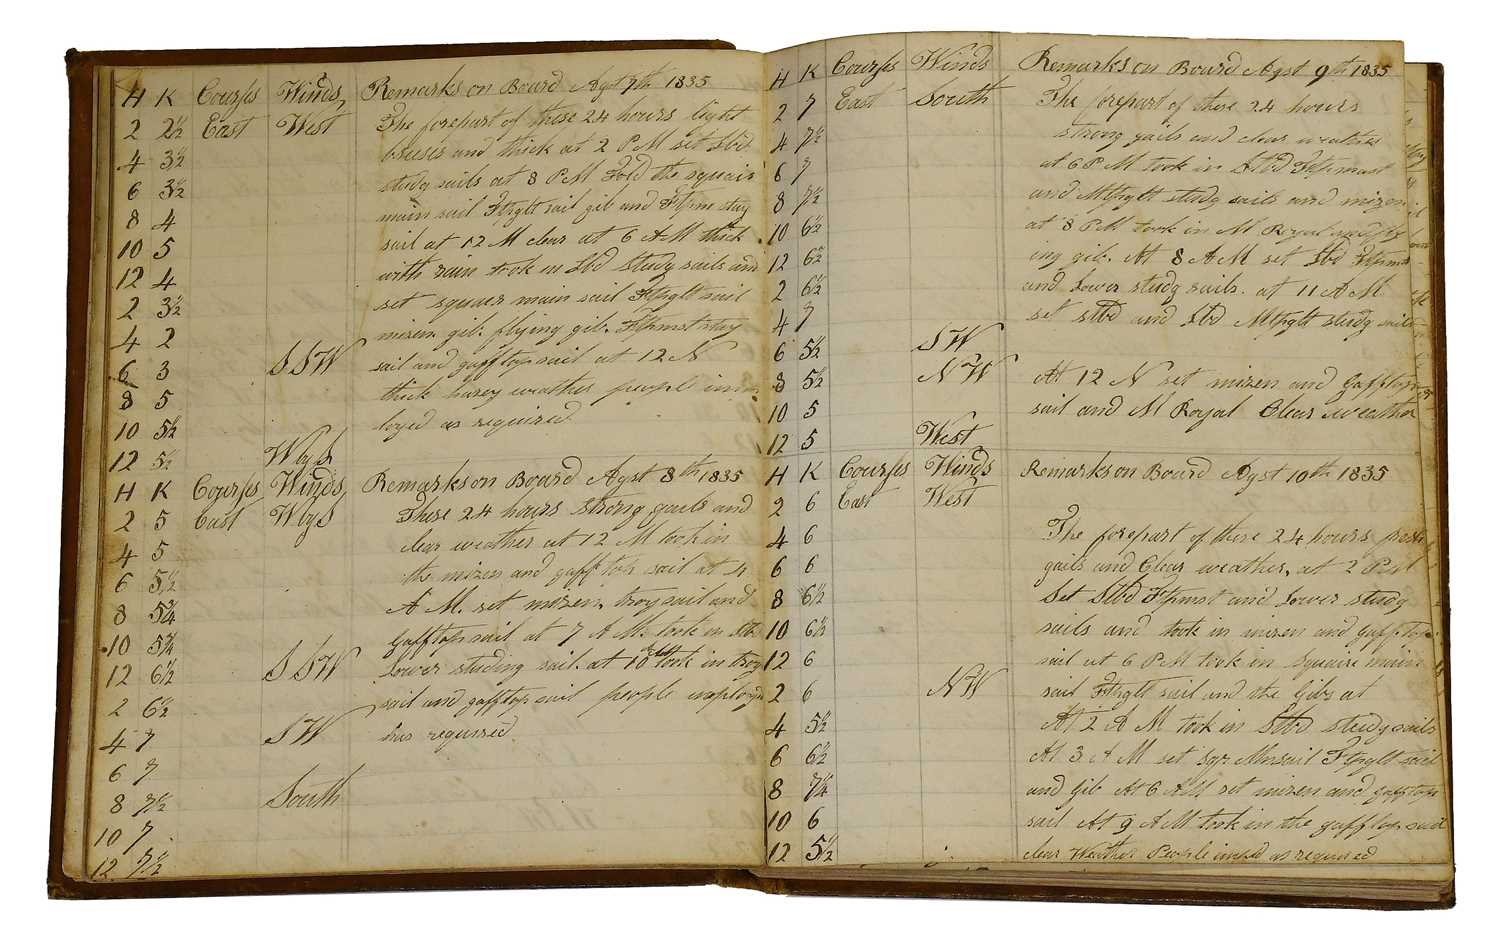 H K Courses Winds Remarks on Board Agst 7th 1835
2 2½ East West The forepart of these 24 hours light
breeses and thick at 2 PM set Lbd
4 3½
studg sails at 8 PM Ford the squair
6 3½
main sail Ftpglt sail gib and Ftpms stay
8 4
sail at 12 M clear at 6 AM thick
10 5
with rain took in Lbd studg sails and
12 4
set squaer main sail Ftpglt sail
2 3½
mizen gib flying gib. Ftpmst stay
4 2
sail and gafftopsail at 12 N
6 3 SSW
thick hazey weather people im
8 5
loyed as required
10 5½
12 5½ WbyS
H K Courses Winds Remarks on Board Agst 8th 1835
2 5 East WbyS These 24 hours strong gails and
clear weather at 12 M took in
4 5
the mizen and gafftop sail at 4
6 5½
A M. set mizen, troysail and
8 5¾
Gafftopsail at 7 AM. took in Stb
10 5¾
lower studing sail. at 10 AM took in troy
12 6½ SSW
sail and gafftopsail people imploy
2 6½
has requised
4 7 SW
6 7
8 7½ South
10 7
12 7½
H K Courses Winds Remarks on Board Agst 9th 1835
2 7 East South The forepart of these 24 hours
strong gails and clear weather
4 7½
at 6 PM took in Stbd Ftpmast
6 7
and Mtpglt studg sails and mizen
8 7½
at 8 PM took in M Royal and fly
10 6½
ing gib. At 8 AM set Lbd Ftpmst
12 6½
and Lower studg sails. at 11 AM
2 6½
set stbd and Lbd Mtpglt studg sails
4 7
6 5½ SW
8 5½ NW At 12 N set mizen and Gafftop
10 5 sail and M Royal Clear weather
12 5 West
H K Courses Winds Remarks on Board Agst 10th 1835
2 6 East West
4 6 The forepart of these 24 hours fresh
6 6 gails and Clear weather, at 2 PM
8 6½ Set Stbd Ftpmst and Lower studg
10 6½ sails and took in mizen and Gafftop
12 6 sail at 6 PM took in Squaire main
2 6 NW sail Ftpglt sail and the Gibs at
4 5½ At 2 AM took in Stbd studg sails
6 6½ At 3 AM set sqr Mnsail Ftpglt sail
8 7¼ and Gib At 6 AM set mizen and gafftop
10 6 sail At 9 AM took in the gafftop sail
12 5½ clear Weather People impd as required